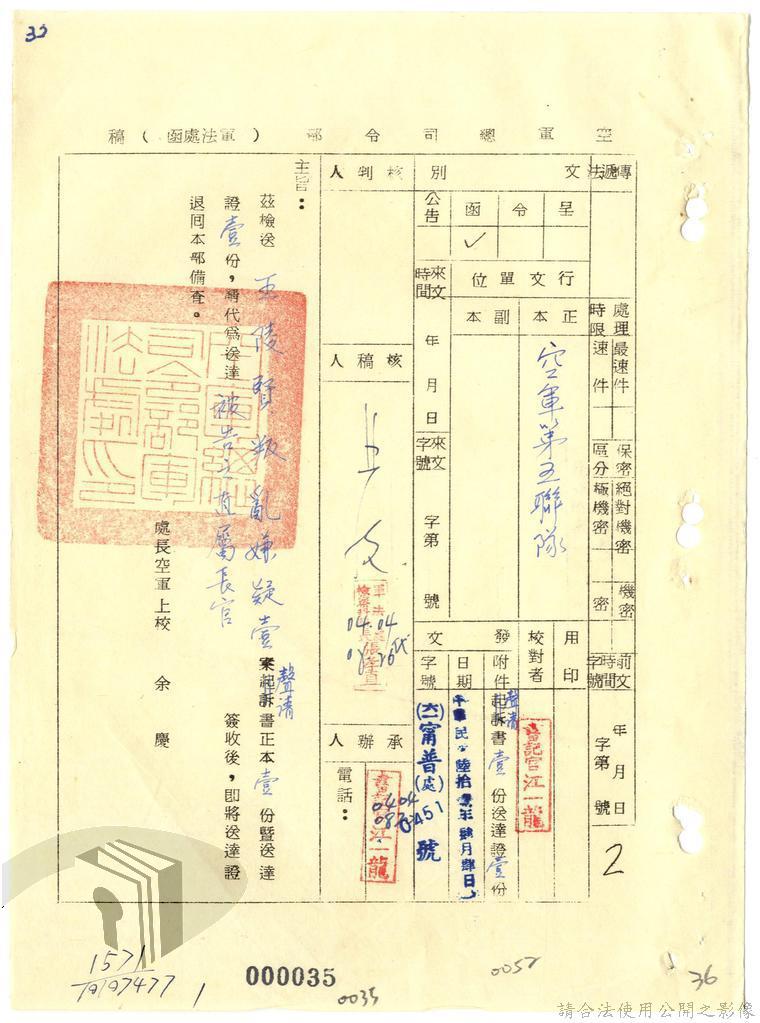 33
空軍總司令部（軍法處函）稿
傳遞法
文別
呈
令
函 ✓
公告
核判人
處理時限
最速件
速件
保密區分
絕對機密
極機密
機密
密
前文時間字號
年月日
字第號
2
行文單位
正本
副本
空軍第五聯隊
來文時間
年月日
來文字號
字第號
核稿人
用印
校對者
書記官江一龍
發文
附件
聲請書壹份送達證壹份
日期
中華民國陸拾壹年肆月肆日
字號
(六一)甯普(處)0451號
0404
承辦人
電話：
江一龍
主旨：
茲檢送王陵賢叛亂嫌疑壹案聲請書正本壹份暨送達
證壹份，請代為送達被告之直屬長官簽收後，即將送達證
退回本部備查。
處長空軍上校余慶
1571
1
000035
0035
0052
36
請合法使用公開之影像